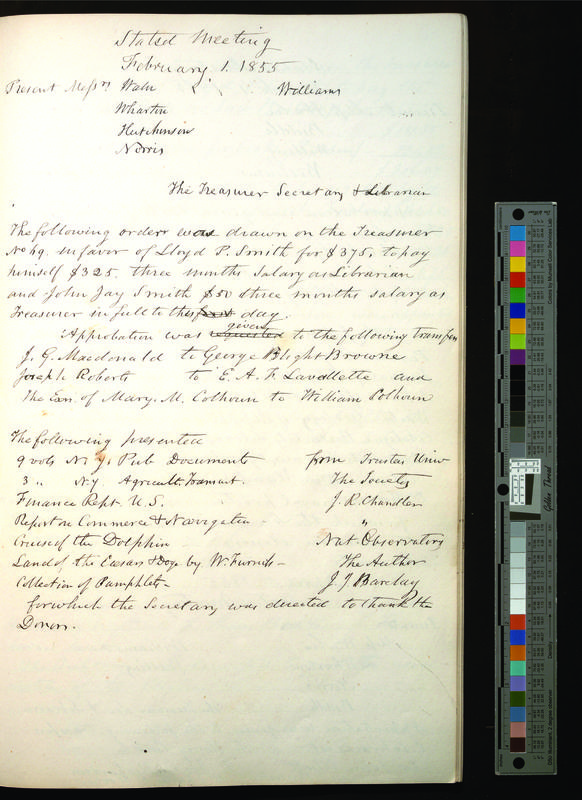 Stated Meeting
February 1. 1855
Present Messrs Waln Williams
Wharton
Hutchinson
Norris
The Treasurer Secretary & Librarian
The following order was drawn on the Treasurer
No 69. in favor of Lloyd P. Smith for $375, to pay
himself $325. three months Salary as Librarian
and John Jay Smith $50 three months salary as
Treasurer in full to this day.
Approbation was given to the following transfers
J. G. Macdonald to George Blight Browne
Joseph Roberts to E. A. F. Lavallette and
The Exr. of Mary. M. Colhoun to William Colhoun
The following presented
9 vols N. Y. Pub Documents from Trustees Univ
3 " N.Y. Agricult. Transact. The Society
Finance Rept. U.S. J. R. Chandler
Report on Commerce & Navigation "
Cruise of the Dolphin Nat Observatory
Land of the Cæsars & Doge by W. Furniss The Author
Collection of Pamphlets J J Barclay
for which the Secretary was directed to thank the
Donors.